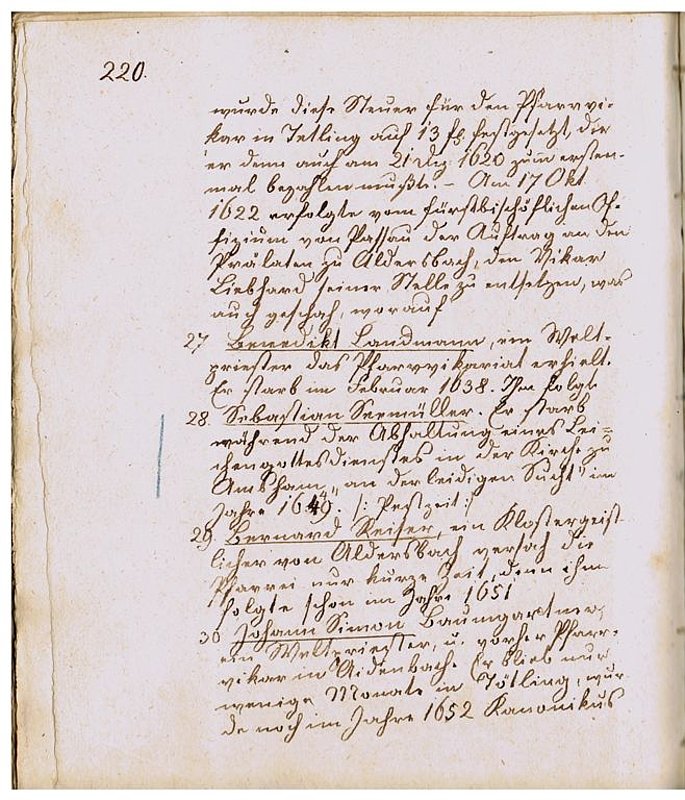 220.
wurde diese Steuer für den Pfarrvi-
kar in Tetling auf 13 fl festgesetzt, die
er denn auch am 21 Dez. 1620 zum ersten-
mal bezahlen mußte. – Am 17 Okt.
1622 erfolgte vom fürstbischöflichen Of-
fizium von Passau der Auftrag an den
Prälaten zu Aldersbach, den Vikar
Liebhard seiner Stelle zu entsetzen, was
auch geschah, worauf
27 Benedikt Landmann, ein Welt-
priester das Pfarrvikariat erhielt.
Er starb im Februar 1638. Ihm folgte
28. Sebastian Seemüller. Er starb
während der Abhaltung eines Lei=
chengottesdienstes in der Kirche zu
Amsham „an der leidigen Sucht" im
Jahre 1649. /: Pestzeit :/
29. Bernard Reiser, ein Klostergeist-
licher von Aldersbach versah die
Pfarrei nur kurze Zeit, denn ihm
folgte schon im Jahre 1651
30. Johann Simon Baumgartner,
ein Weltpriester, u. vorher Pfarr-
vikar in Aidenbach. Er blieb nur
wenige Monate in Tötling, wur-
de noch im Jahre 1652 Kanonikus